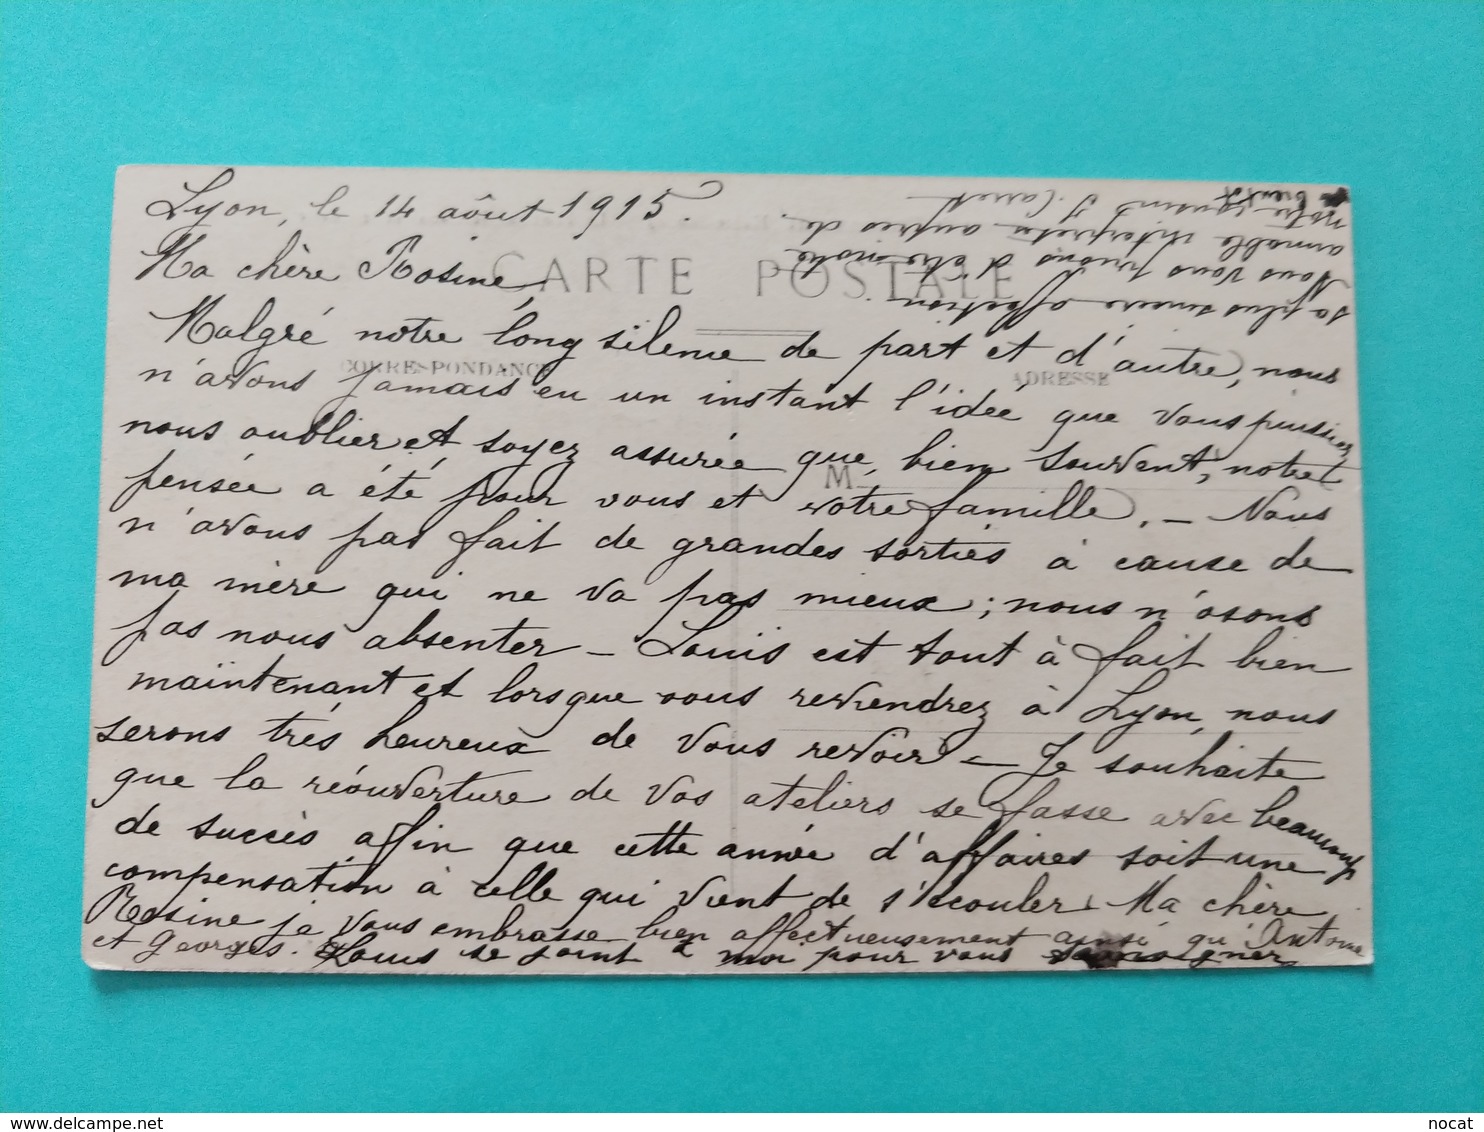 Lyon, le 14 aôut 1915.
Ma chère Rosine,
CARTE POSTALE
Malgré notre long silence de part et d'autre, nous
CORRESPONDANCE
ADRESSE
n'avons jamais eu un instant l'idée que vous puissiez
nous oublier et soyez assurée que, bien souvent, notre
M.
pensée a été pour vous et votre famille. — Nous
n'avons pas fait de grandes sorties à cause de
ma mère qui ne va pas mieux ; nous n'osons
pas nous absenter — Louis est tout à fait bien
maintenant et lorsque vous reviendrez à Lyon, nous
serons très heureux de vous revoir — Je souhaite
que la réouverture de vos ateliers se fasse avec beaucoup
de succès afin que cette année d'affaires soit une
compensation à celle qui vient de s'écouler. Ma chère
Rosine je vous embrasse bien affectueusement ainsi qu'Antoine
et Georges. Louis se joint à moi pour vous
sa plus sincère affection.
Nous vous prions d'être notre
aimable interprète auprès de
notre cousin J.
bientôt
delcampe.net
nocat